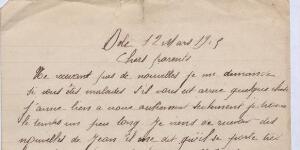 Dole 12 Mars 19.5
Chers parents
Ne recevant pas de nouvelles je me demande
si vous êtes malades s'il vous est arrivé quelques chose
j'aime bien a vous seulement je trouve
le temps un peu long Je viens de recevoir des
nouvelles de Jean il me dit qu'il se porte très